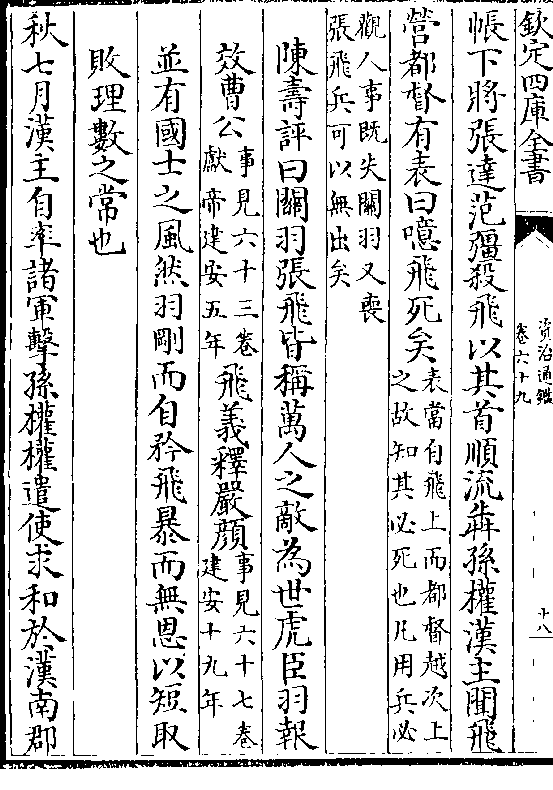 欽定四庫全書
資治通鑑
卷六十九
十八
帳下將張達范彊殺飛以其首順流犇孫權漢主聞飛
營都督有表曰噫飛死矣表當自飛上而都督越次上之故知其必死也凡用兵必
觀人事既失關羽又喪張飛兵可以無出矣
陳壽評曰關羽張飛皆稱萬人之敵為世虎臣羽報
效曹公事見六十三卷獻帝建安五年飛義釋嚴顔事見六十七卷建安十九年
並有國士之風然羽剛而自矜飛暴而無恩以短取
敗理數之常也
秋七月漢主自率諸軍擊孫權權遣使求和於漢南郡